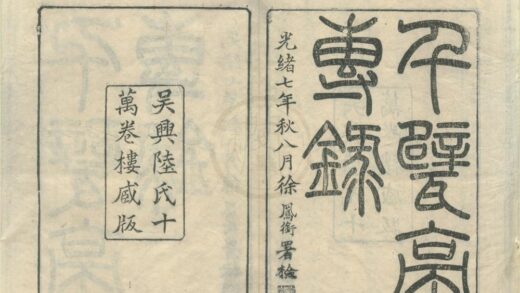 千甓亭
專錄
光緒七年秋八月徐鳳銜署檢
吳興陸氏十
萬卷樓臧版